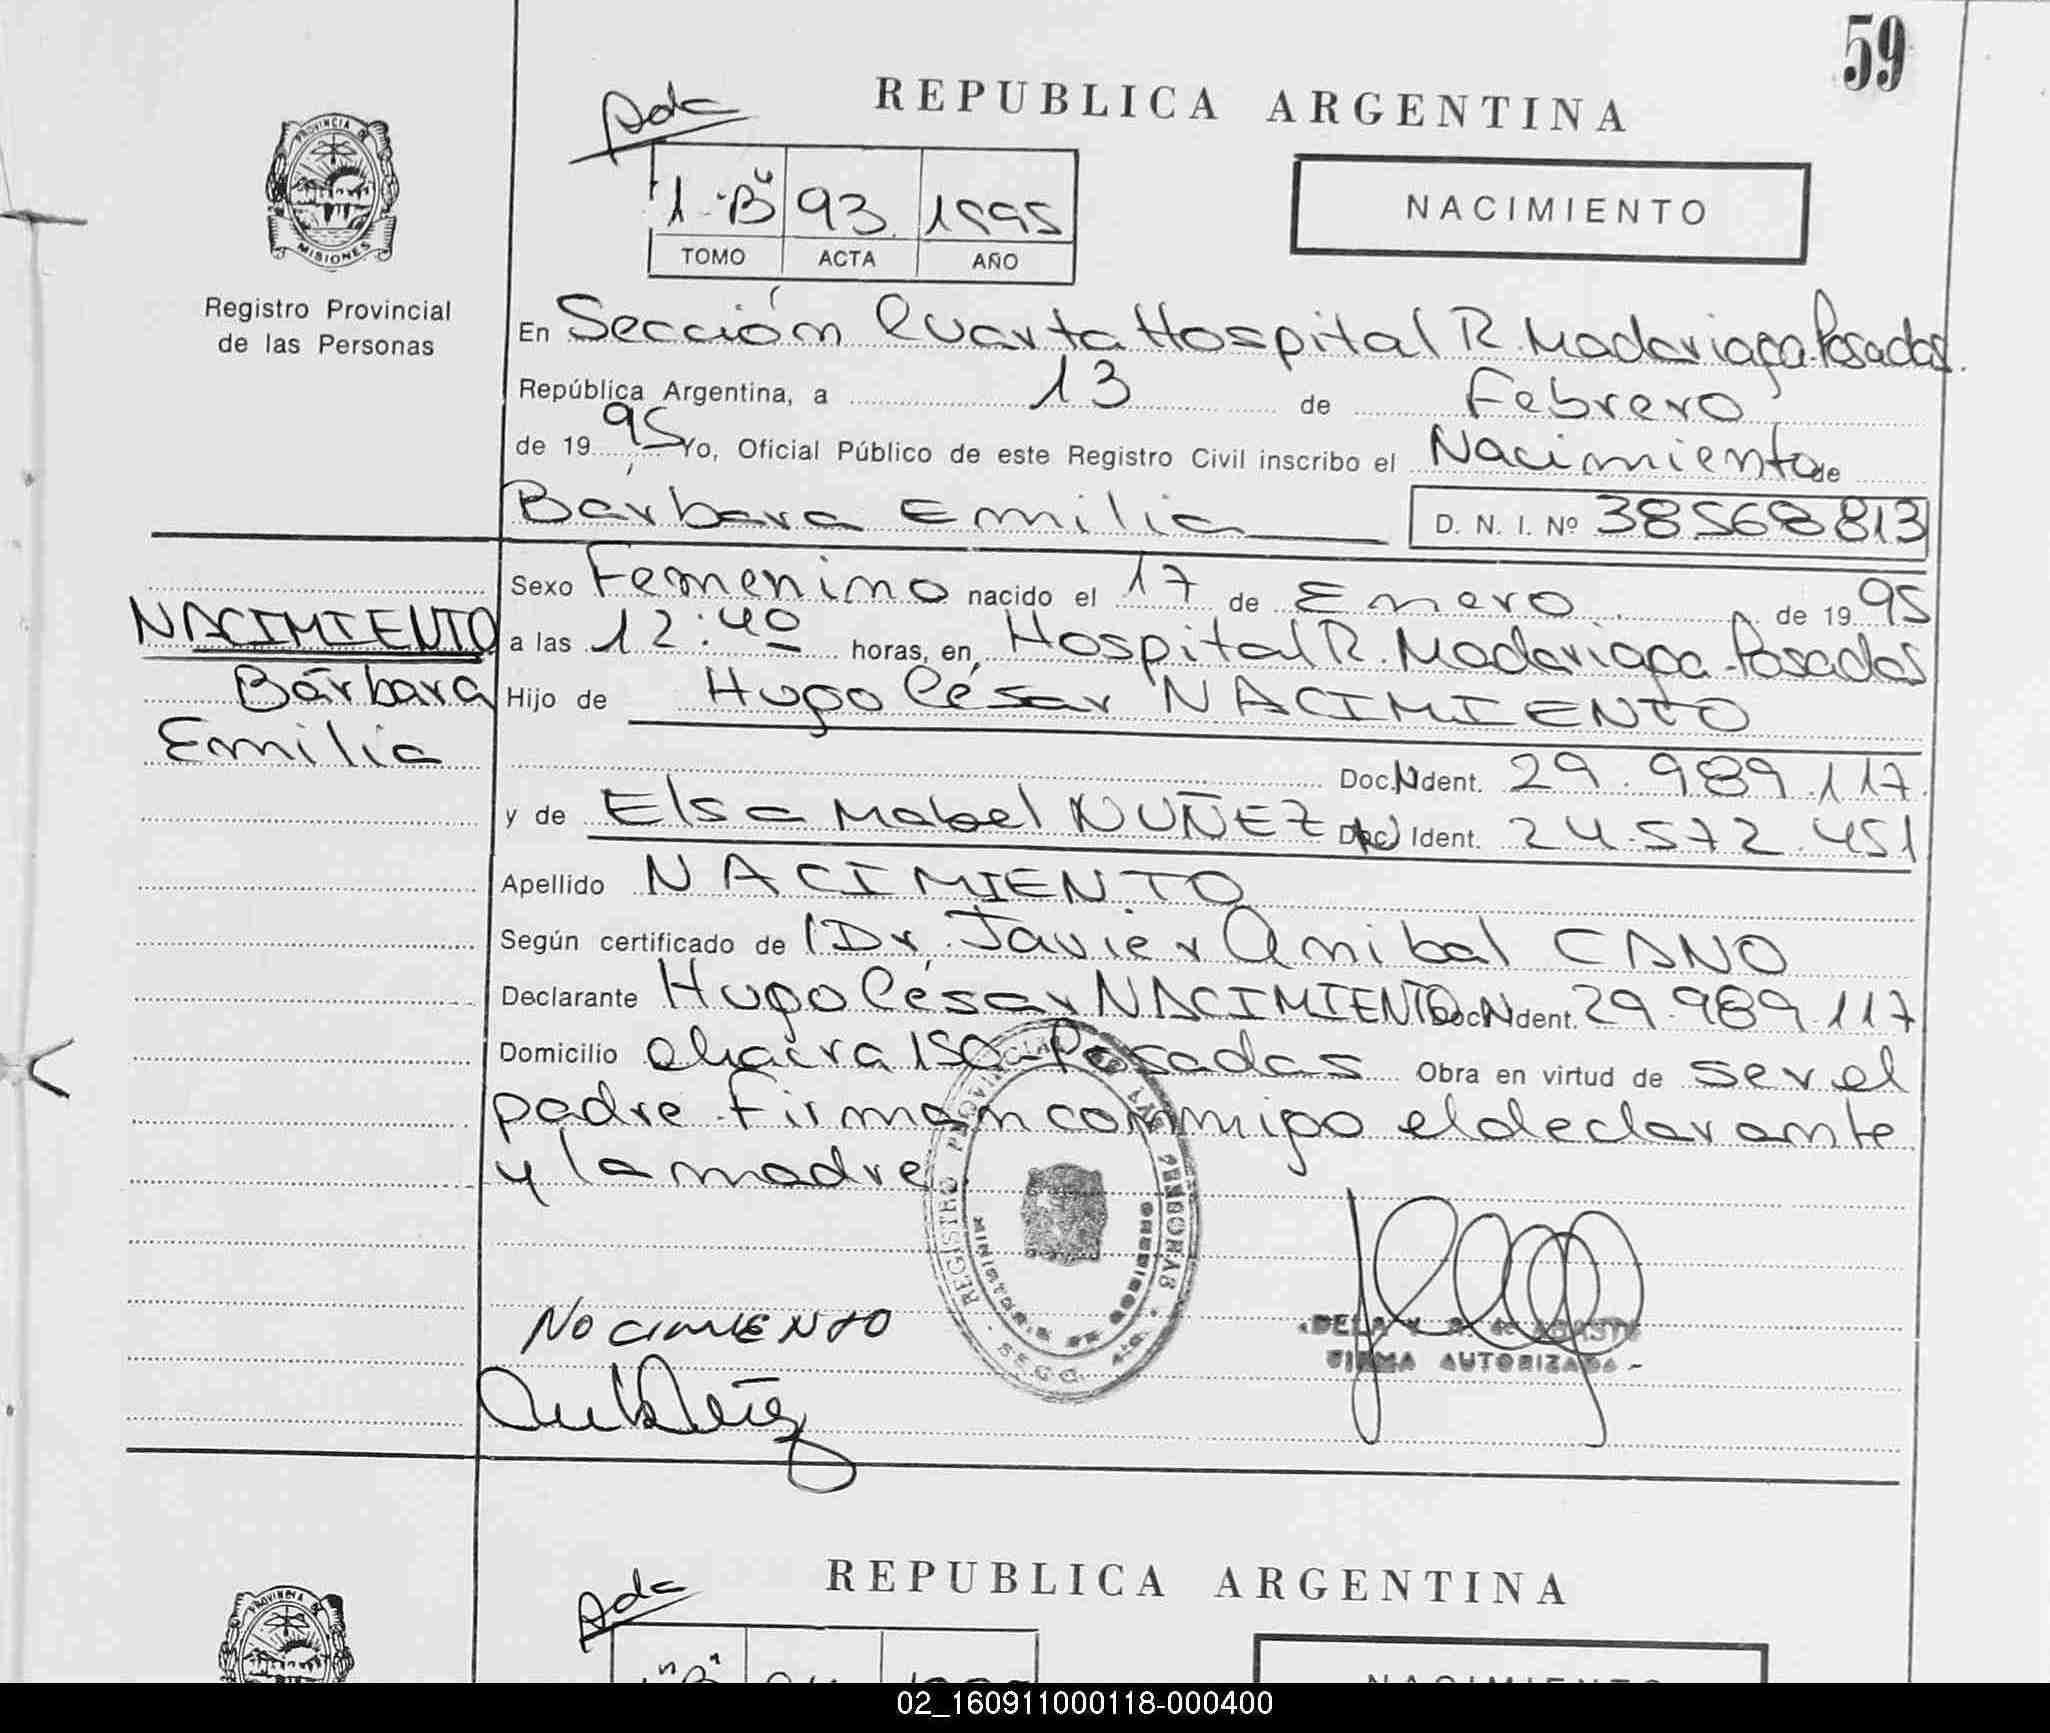 59
Ada
REPUBLICA ARGENTINA
PROVINCIA DE
MISIONES
1 "B" 93 1995
TOMO ACTA AÑO
NACIMIENTO
Registro Provincial
de las Personas
En Sección Cuarta Hospital R. Madariaga. Posadas.
República Argentina, a 13 de Febrero
de 1995 Yo, Oficial Público de este Registro Civil inscribo el Nacimiento de
Bárbara Emilia D. N. I. Nº 38568813
Sexo Femenino nacido el 17 de Enero de 1995
a las 12:40 horas, en Hospital R. Madariaga - Posadas
Hijo de Hugo César NACIMIENTO
Doc. N Ident. 29.989.117.
y de Elsa Mabel NUÑEZ Doc. N Ident. 24.572.451
Apellido NACIMIENTO
Según certificado de Dr. Javier Anibal CANO
Declarante Hugo César NACIMIENTO Doc. N Ident. 29.989.117
Domicilio chacra 150 - Posadas Obra en virtud de ser el
padre. Firman conmigo el declarante
y la madre
NACIMIENTO
Bárbara
Emilia
REGISTRO PROVINCIAL DE LAS PERSONAS
MINISTERIO DE GOBIERNO
NACIMIENTO
FIRMA AUTORIZADA -
Ada
REPUBLICA ARGENTINA
PROVINCIA DE
NACIMIENTO
02_160911000118-000400